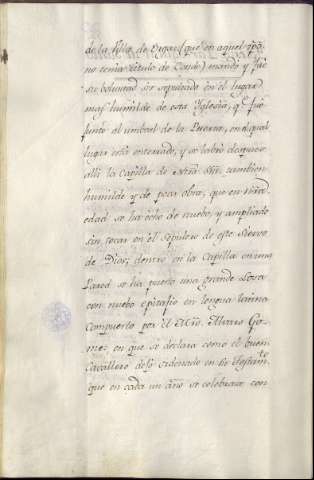 de la Villa de Orgaz (que en aquel tpo.
no tenia titulo de Conde) mandó y fue
su boluntad ser sepultado en el lugar
mas humilde de esta Yglesia, qe. fue
junto al umbral de la Puerta, en el qual
lugar está enterrado, y se labró despues
alli la Capilla de Ntra. Sra. tambien
humilde y de poca obra, que en ntra.
edad se ha echo de nuebo, y ampliado
sin tocar en el Sepulcro de este Siervo
de Dios; dentro en la Capilla en una
Pared se ha puesto una grande Losa
con nuebo epitafio en lengua latina
compuesto por el Mro. Alvaro Go-
mez en que se declara como el buen
Cavallero dejó ordenado en su testamto.
que en cada un año se celebrase con